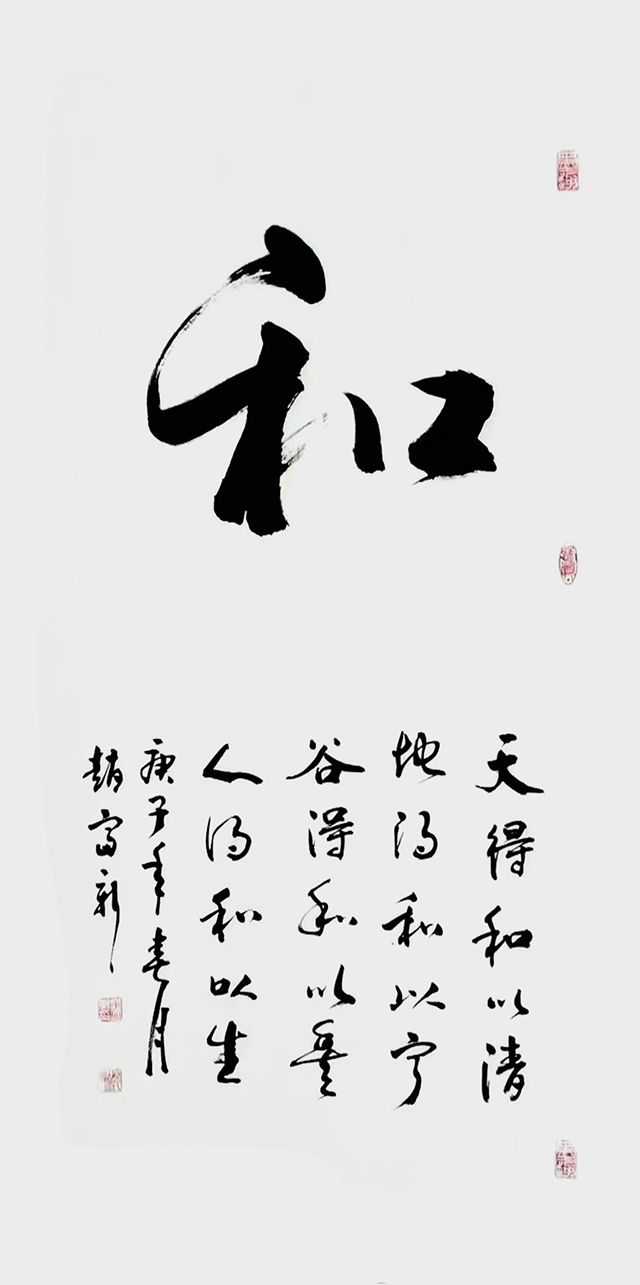 和
天得和以清
地得和以宁
谷得和以盈
人得和以生
庚子年春月
赵富新